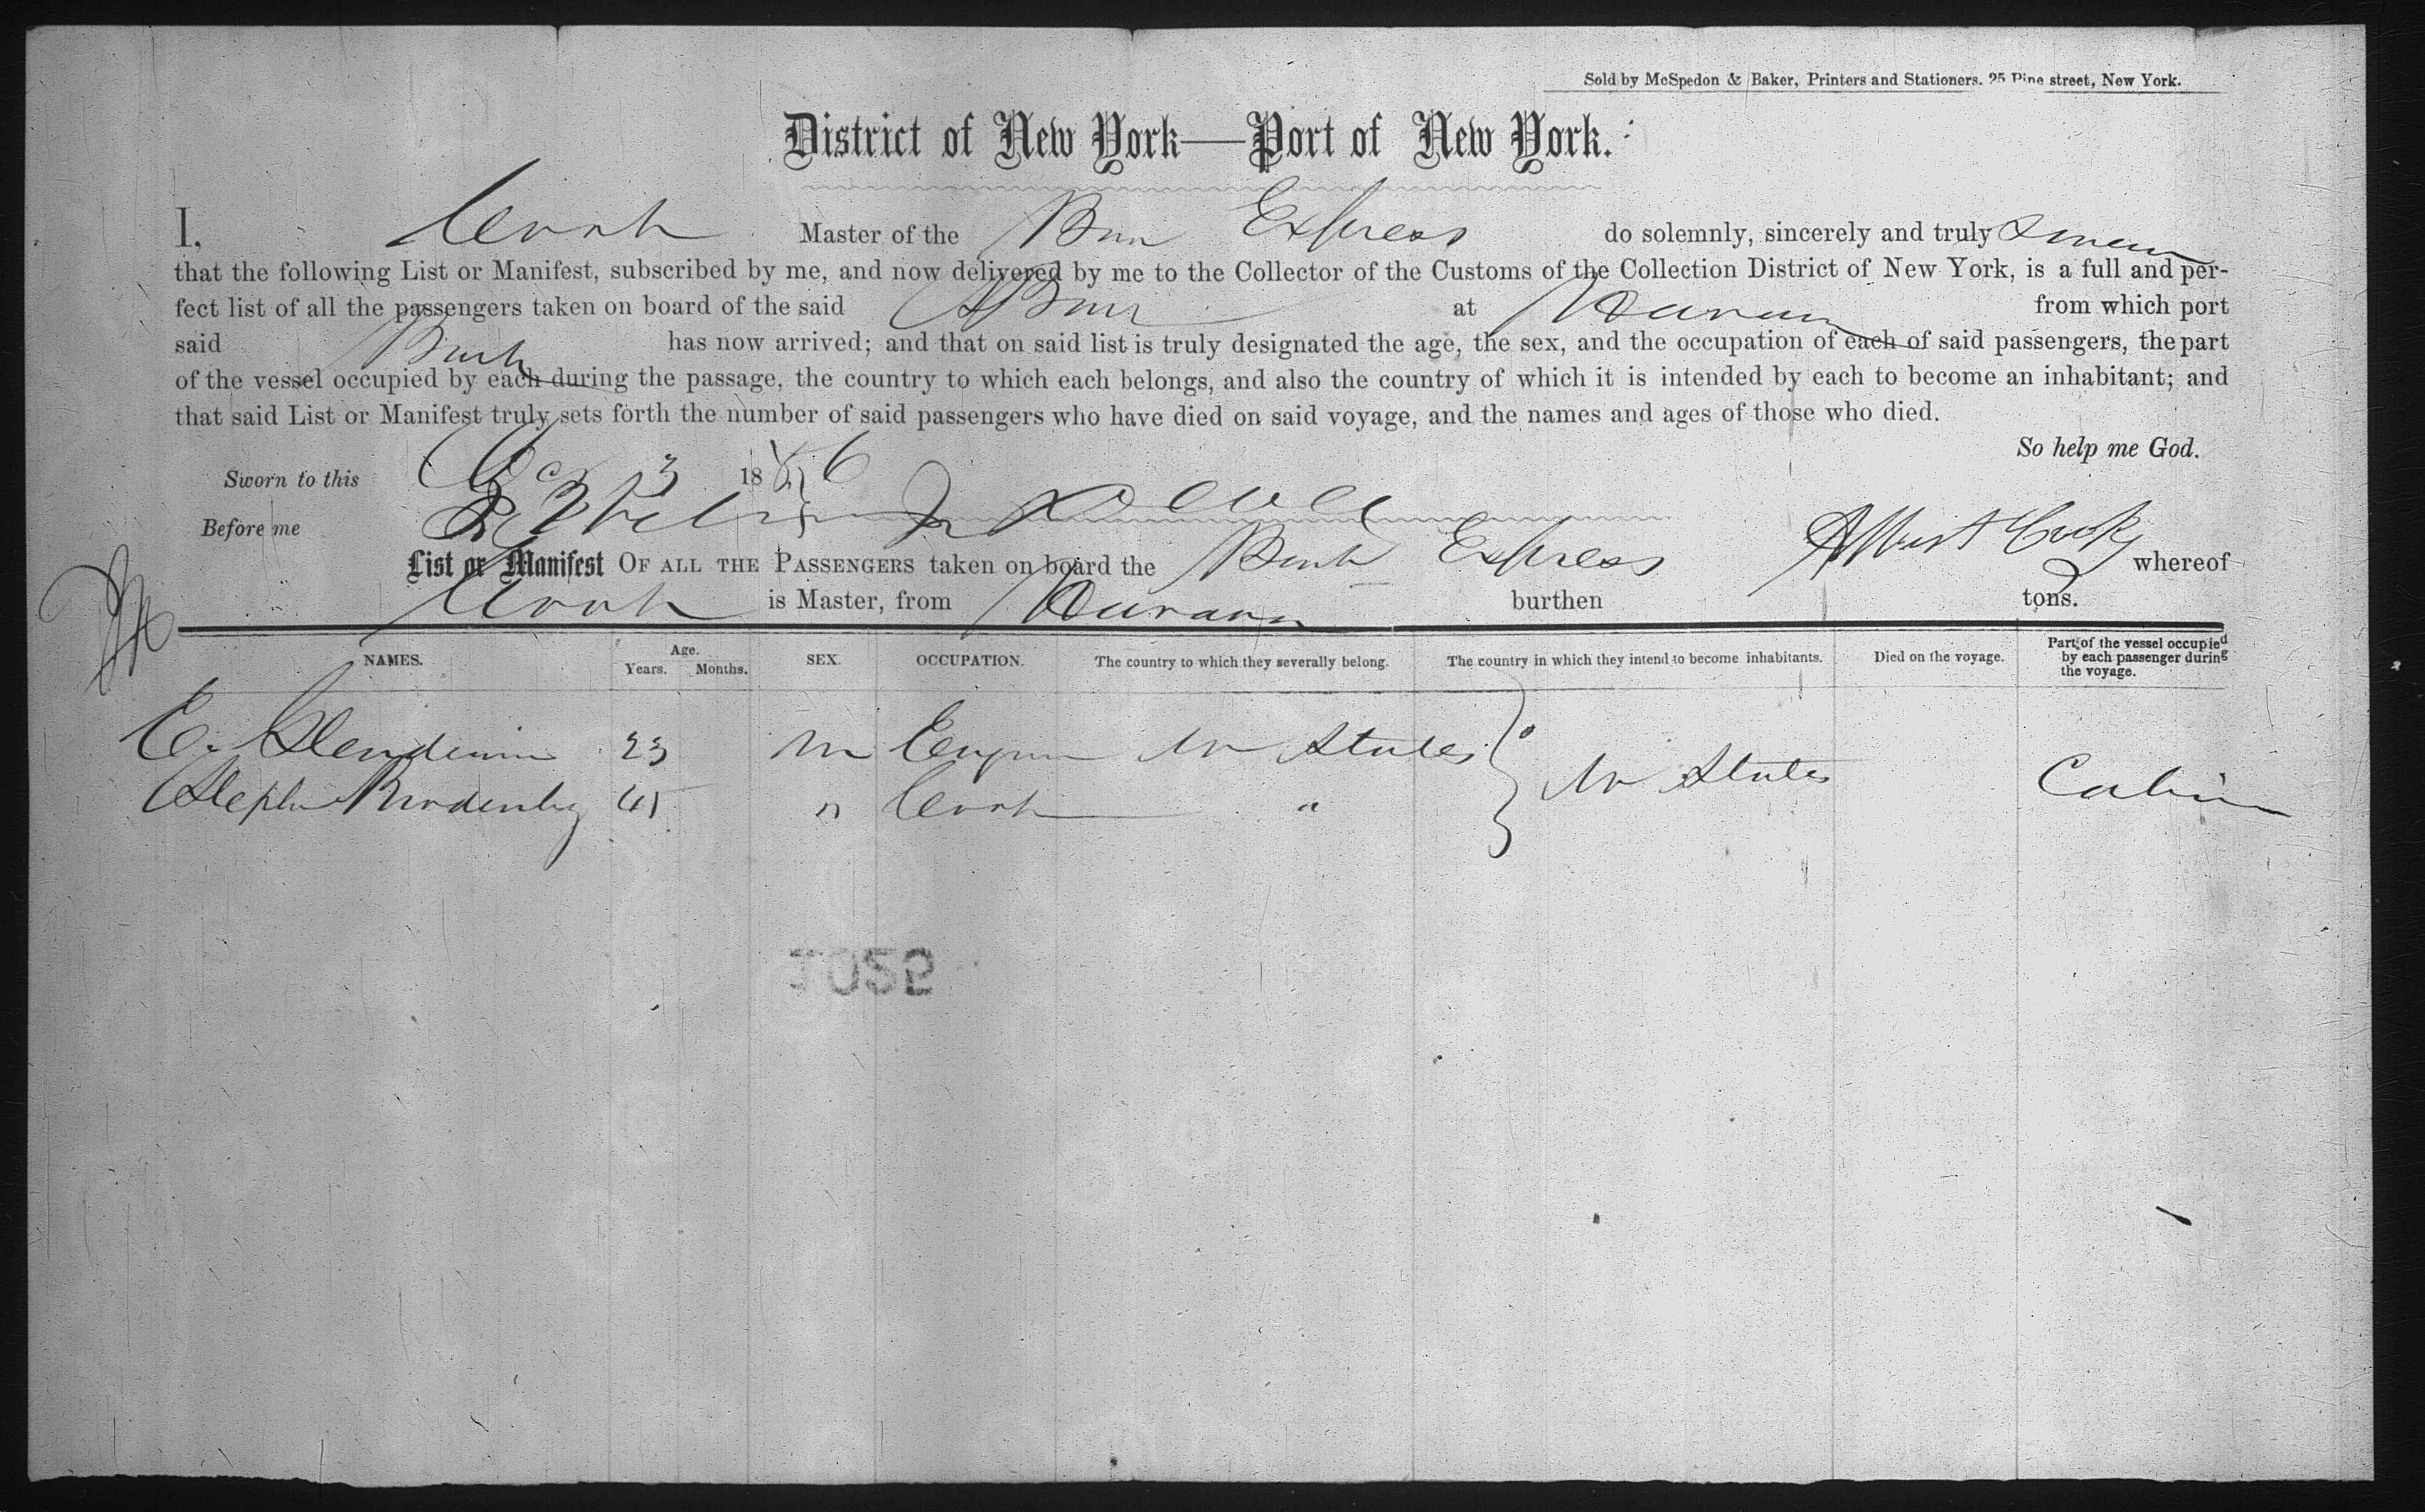 Sold by McSpedon & Baker, Printers and Stationers. 25 Pine street, New York.
District of New York—Port of New York.
I, Cook Master of the Express do solemnly, sincerely and truly swear
that the following List or Manifest, subscribed by me, and now delivered by me to the Collector of the Customs of the Collection District of New York, is a full and per-
fect list of all the passengers taken on board of the said at Havana from which port
said Bark has now arrived; and that on said list is truly designated the age, the sex, and the occupation of each of said passengers, the part
of the vessel occupied by each during the passage, the country to which each belongs, and also the country of which it is intended by each to become an inhabitant; and
that said List or Manifest truly sets forth the number of said passengers who have died on said voyage, and the names and ages of those who died.
So help me God.
Sworn to this 3 1856
Before me
Albert Cook
List or Manifest OF ALL THE PASSENGERS taken on board the Bark Express whereof
Cook is Master, from Havana burthen tons.
NAMES. Age. Years. Months. SEX. OCCUPATION. The country to which they severally belong. The country in which they intend to become inhabitants. Died on the voyage. Part of the vessel occupied by each passenger during the voyage.
E. Glendinin 23 m States
45 " Cook "
States Cabin